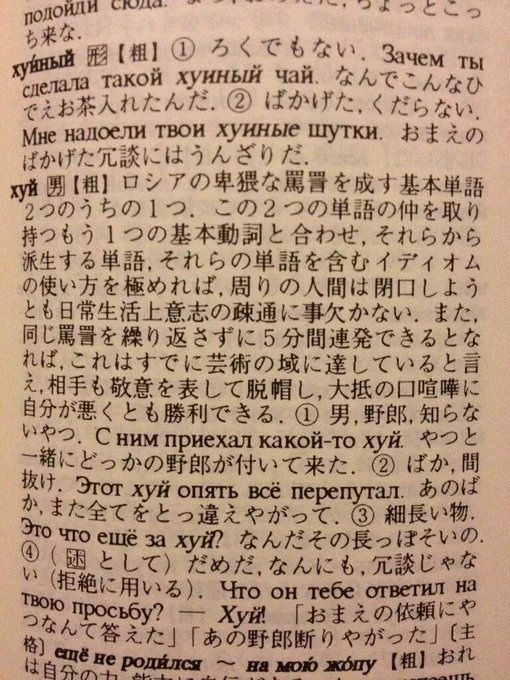 подойди сюда.
ち来な.
хуи́ный 形【粗】① ろくでもない. Зачем ты
сделала такой хуиный чай. なんでこんなひ
でえお茶入れたんだ. ② ばかげた, くだらない.
Мне надоели твои хуиные шутки. おまえの
ばかげた冗談にはうんざりだ.
хуй 男【粗】ロシアの卑猥な罵詈を成す基本単語
2つのうちの1つ. この2つの単語の仲を取り
持つもう1つの基本動詞と合わせ, それらから
派生する単語, それらの単語を含むイディオム
の使い方を極めれば, 周りの人間は閉口しよう
とも日常生活上意志の疎通に事欠かない. また,
同じ罵詈を繰り返さずに5分間連発できるとな
れば, これはすでに芸術の域に達していると言
え, 相手も敬意を表して脱帽し, 大抵の口喧嘩に
自分が悪くとも勝利できる. ① 男, 野郎, 知らな
いやつ. С ним приехал какой-то хуй. やつと
一緒にどっかの野郎が付いて来た. ② ばか, 間
抜け. Этот хуй опять всё перепутал. あのば
か, また全てをとっ違えやがって. ③ 細長い物.
Это что ещё за хуй? なんだその長っぽそいの.
④ (述 として) だめだ, なんにも, 冗談じゃな
い (拒絶に用いる). Что он тебе ответил на
твою просьбу? — Хуй! 「おまえの依頼にや
つなんて答えた」「あの野郎断りやがった」〔主
格〕 ещё не родился ~ на мою жопу【粗】おれ